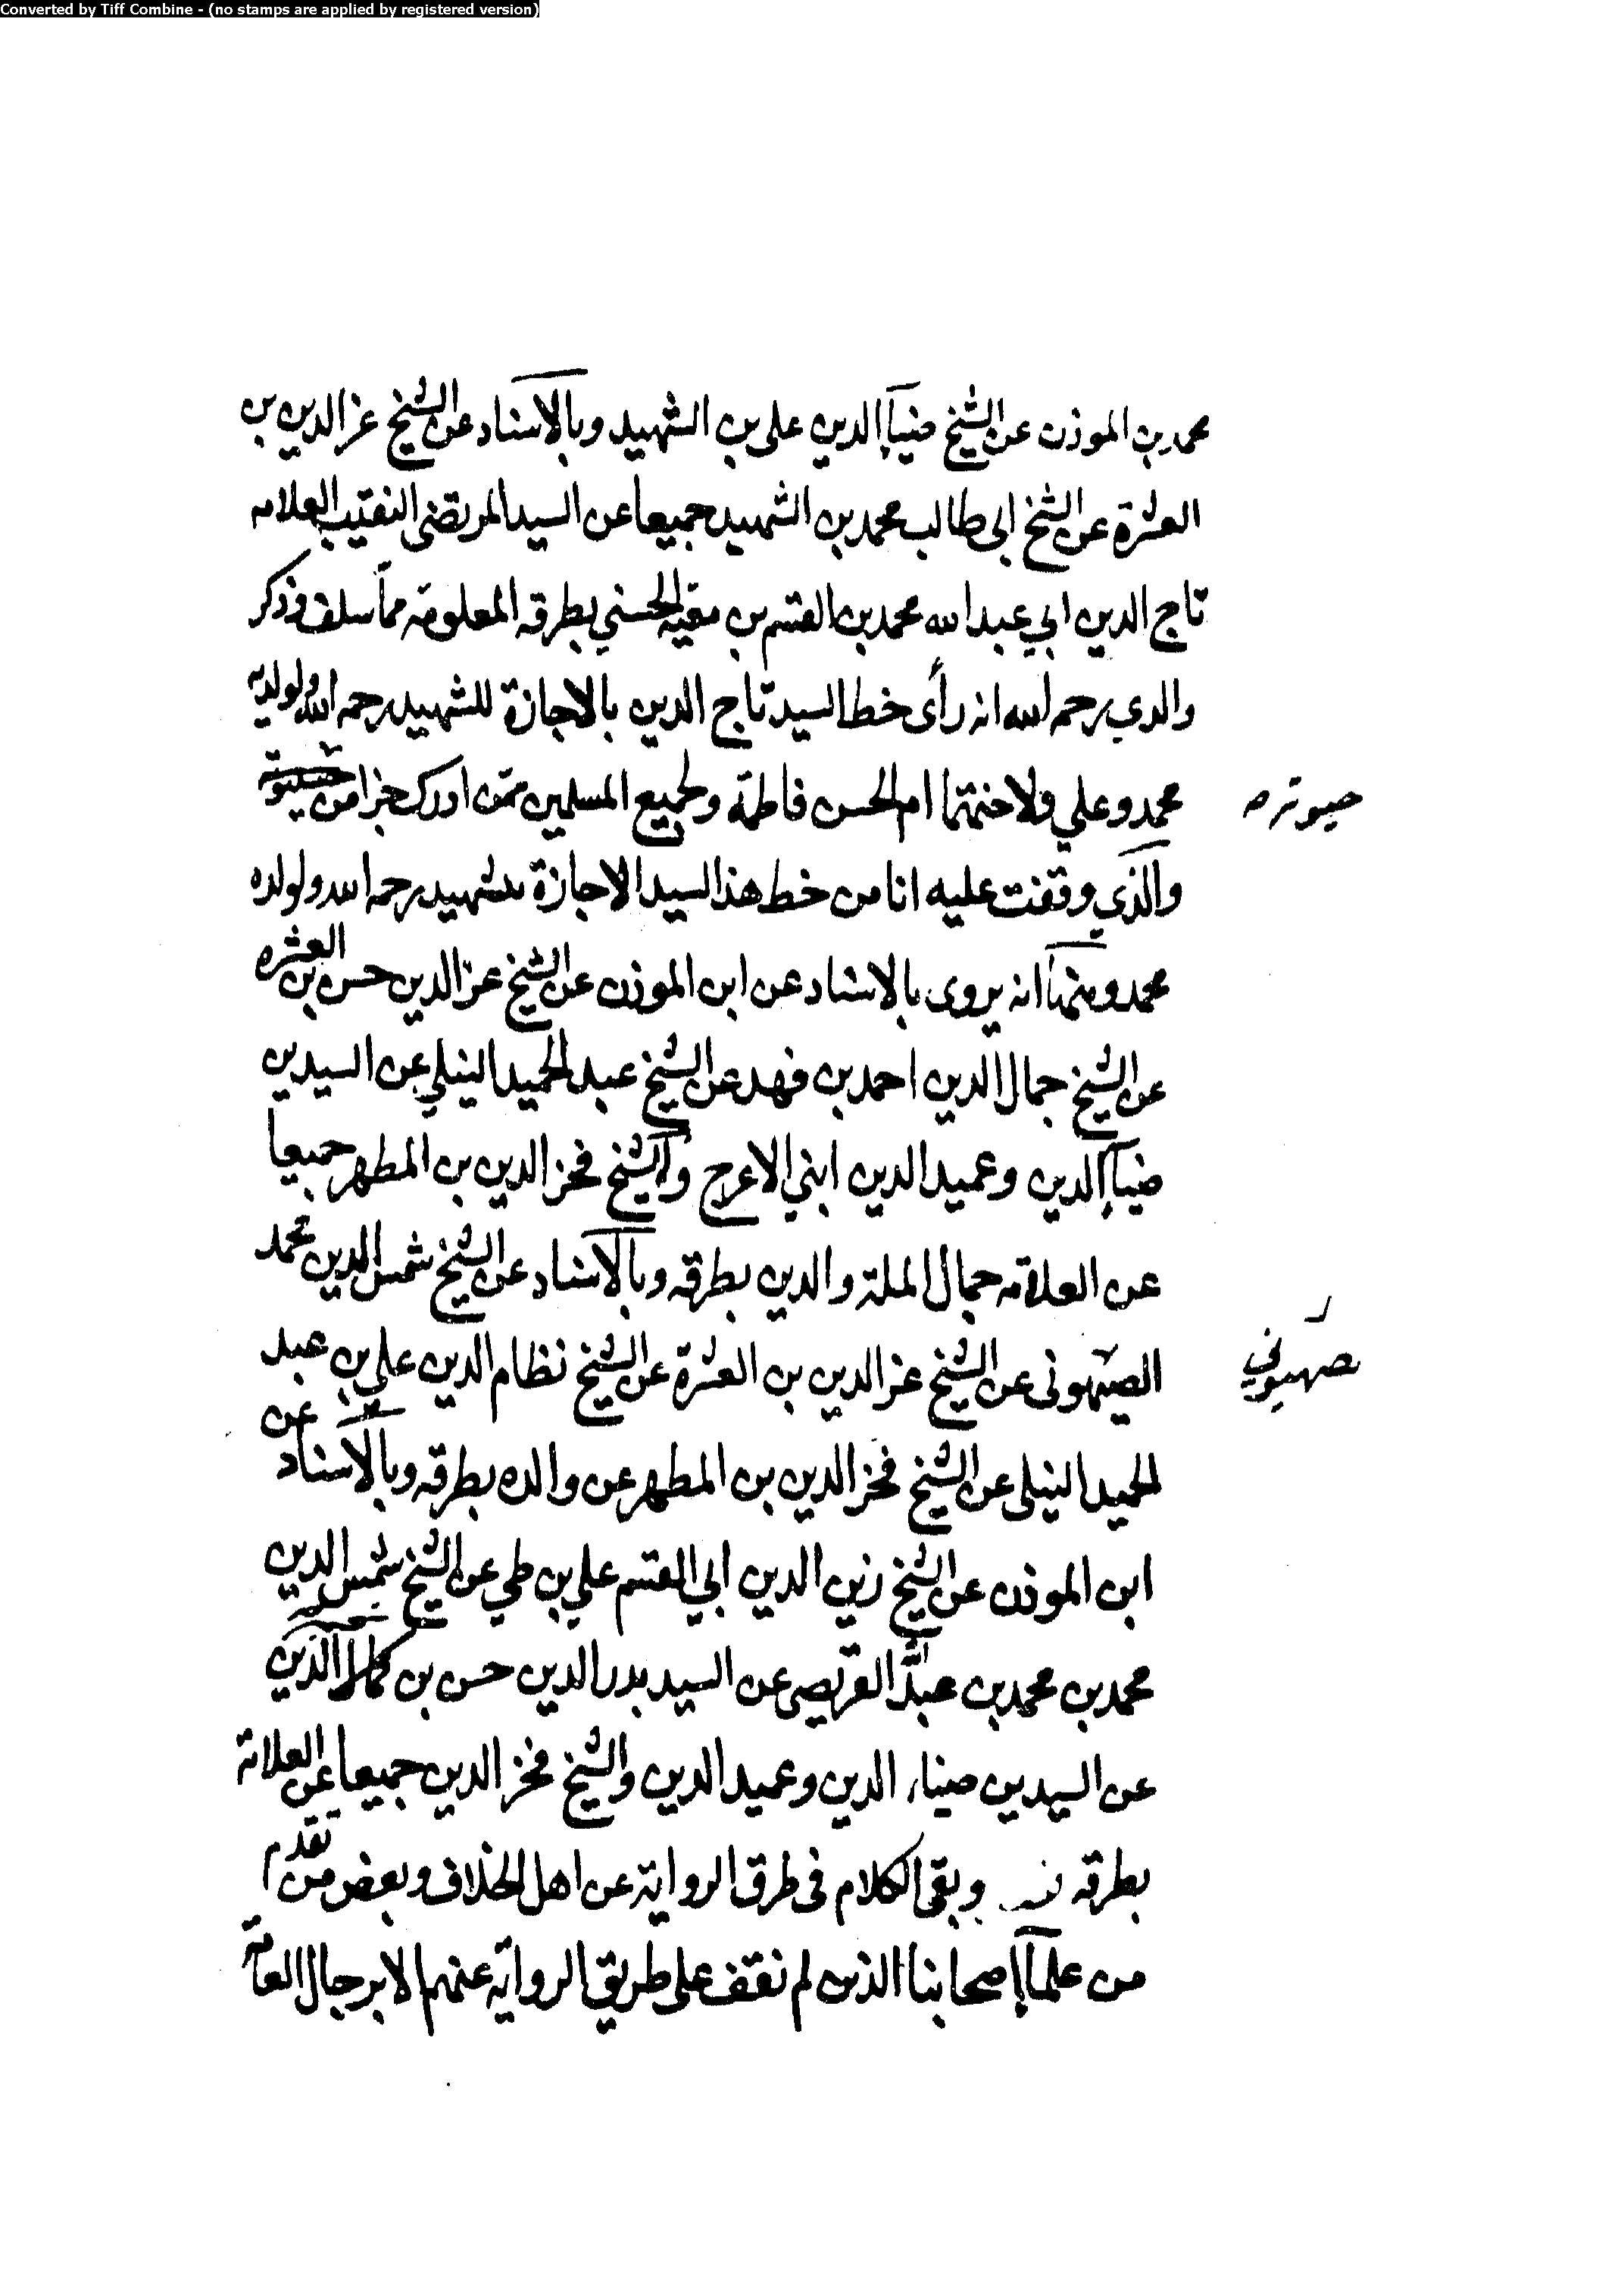 Converted by Tiff Combine - (no stamps are applied by registered version)
محمد بن الموذن عن الشيخ ضيآ الدين على بن الشهيد وبالاسناد عن الشيخ عز الدين بن
العشرة عن الشيخ ابى طالب محمد بن الشهيد جميعا عن السيد المرتضى النقيب العلامه
تاج الدين ابي عبد الله محمد بن القسم بن معيه الحسني بطرقه المعلومة مما سلف وذكر
والدي رحمه الله انه رأى خط السيد تاج الدين بالاجازة للشهيد رحمه الله ولولديه
محمد وعلي ولاختهما ام الحسن فاطمة ولجميع المسلمين ممن ادرك جزا من
حيوته صه
والذي وقفت عليه انا من خط هذا السيد الاجازة للشهيد رحمه الله ولولده
محمد ومنها انه يروى بالاسناد عن ابن الموذن عن الشيخ عز الدين حسن بن العشره
عن الشيخ جمال الدين احمد بن فهد عن الشيخ عبد الحميد النيلي عن السيدين
ضيآ الدين وعميد الدين ابني الاعرج والشيخ فخر الدين بن المطهر جميعا
عن العلامه جمال الملة والدين بطرقه وبالاسناد عن الشيخ شمس الدين محمد
الصهيونى عن الشيخ عز الدين بن العشرة عن الشيخ نظام الدين علي بن عبد
صهيوني
الحميد النيلى عن الشيخ فخر الدين بن المطهر عن والده بطرقه وبالاسناد عن
ابن الموذن عن الشيخ زين الدين ابي القسم علي بن طي عن الشيخ شمس الدين
محمد بن محمد بن عبد الله العريضى عن السيد بدر الدين حسن بن
عن السيدين ضياء الدين وعميد الدين والشيخ فخر الدين جميعا عن العلامة
بطرقه وبقى الكلام فى طرق الرواية عن اهل الخلاف وبعض من تقدم
من علمآ اصحابنا الذين لم نقف على طريق الرواية عنهم الا برجال العامة